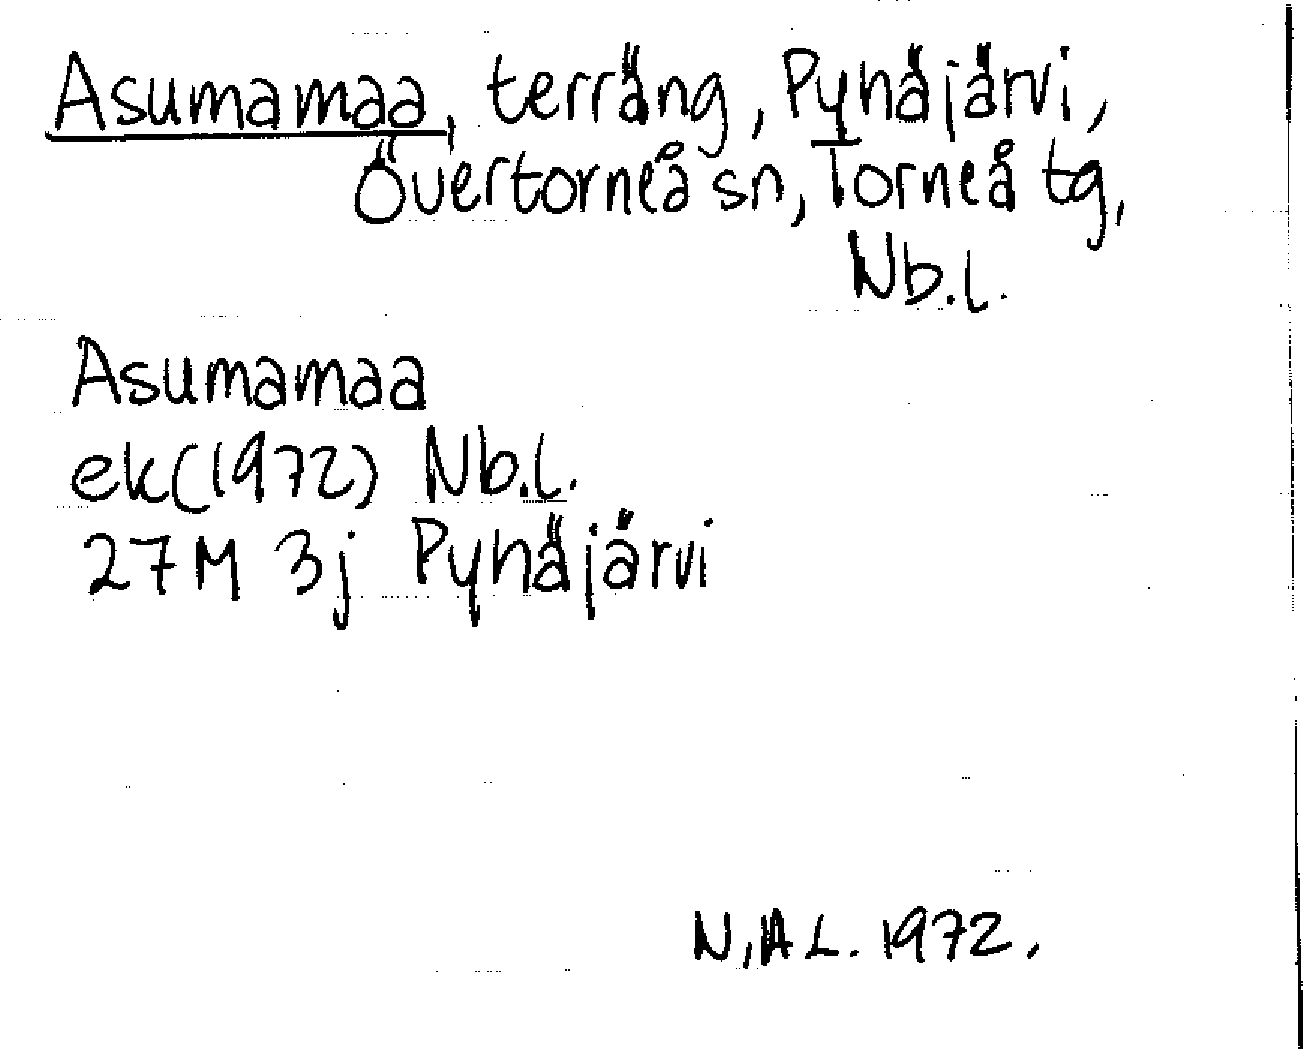 Asumamaa, terräng, Pyhäjärvi,
Övertorneå sn, Torneå tg,
Nb.l.
Asumamaa
ek(1972) Nb.l.
27M 3j Pyhäjärvi
N.AL. 1972.